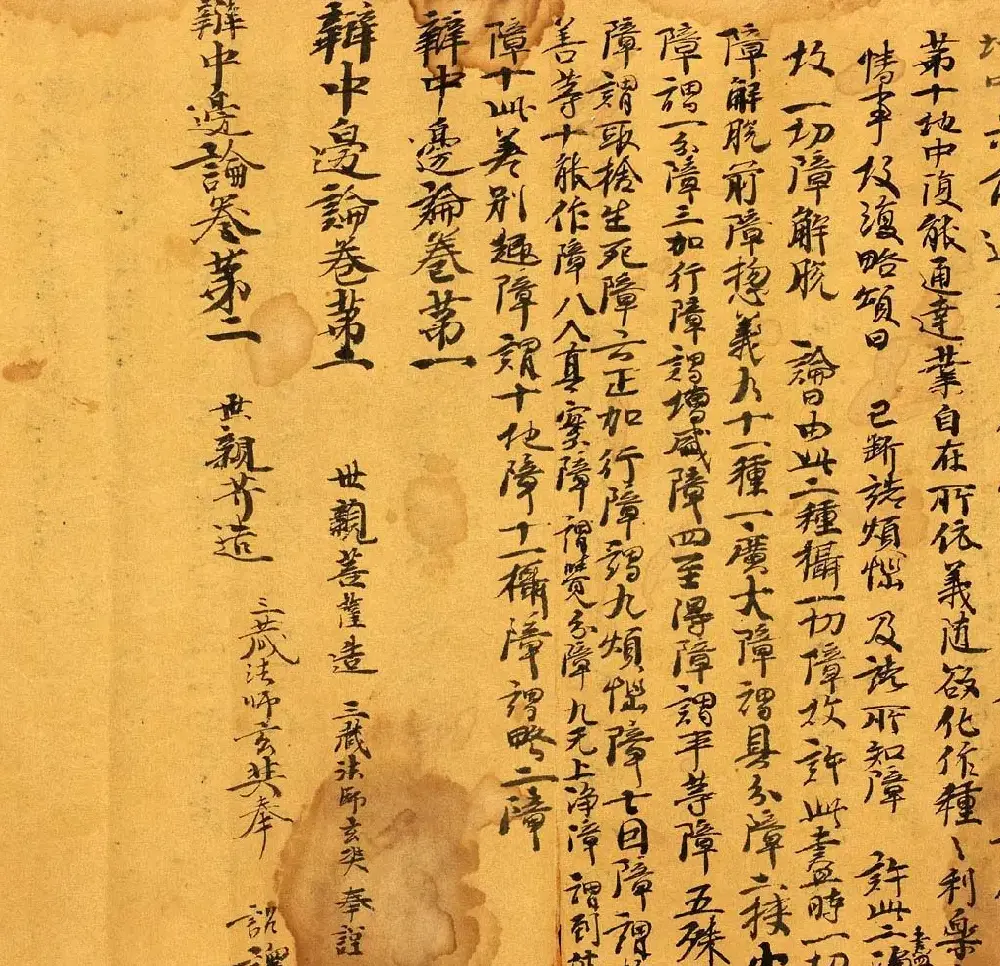 第十地中復能通達業自在所依義随欲化作種〻利樂
情事故復略頌曰　已断諸煩惱　及諸所知障　許此二
故一切障解脱　論曰由此二種攝一切障故許此盡時一切
障解脱前障惣義有十一種一廣大障謂具分障二狹
障謂一分障三加行障謂增盛障四至得障謂平等障五殊
障謂取捨生死障六正加行障謂九煩惱障七因障謂
善等十能作障八入真實障謂覺分障九无上淨障謂到
障十此差别趣障謂十地障十一攝障謂略二障
辯中邊論卷第一
辯中邊論卷第二　世親菩薩造　三藏法師玄奘奉詔
辯中邊論卷第二　世親菩薩造　三藏法師玄奘奉　詔譯